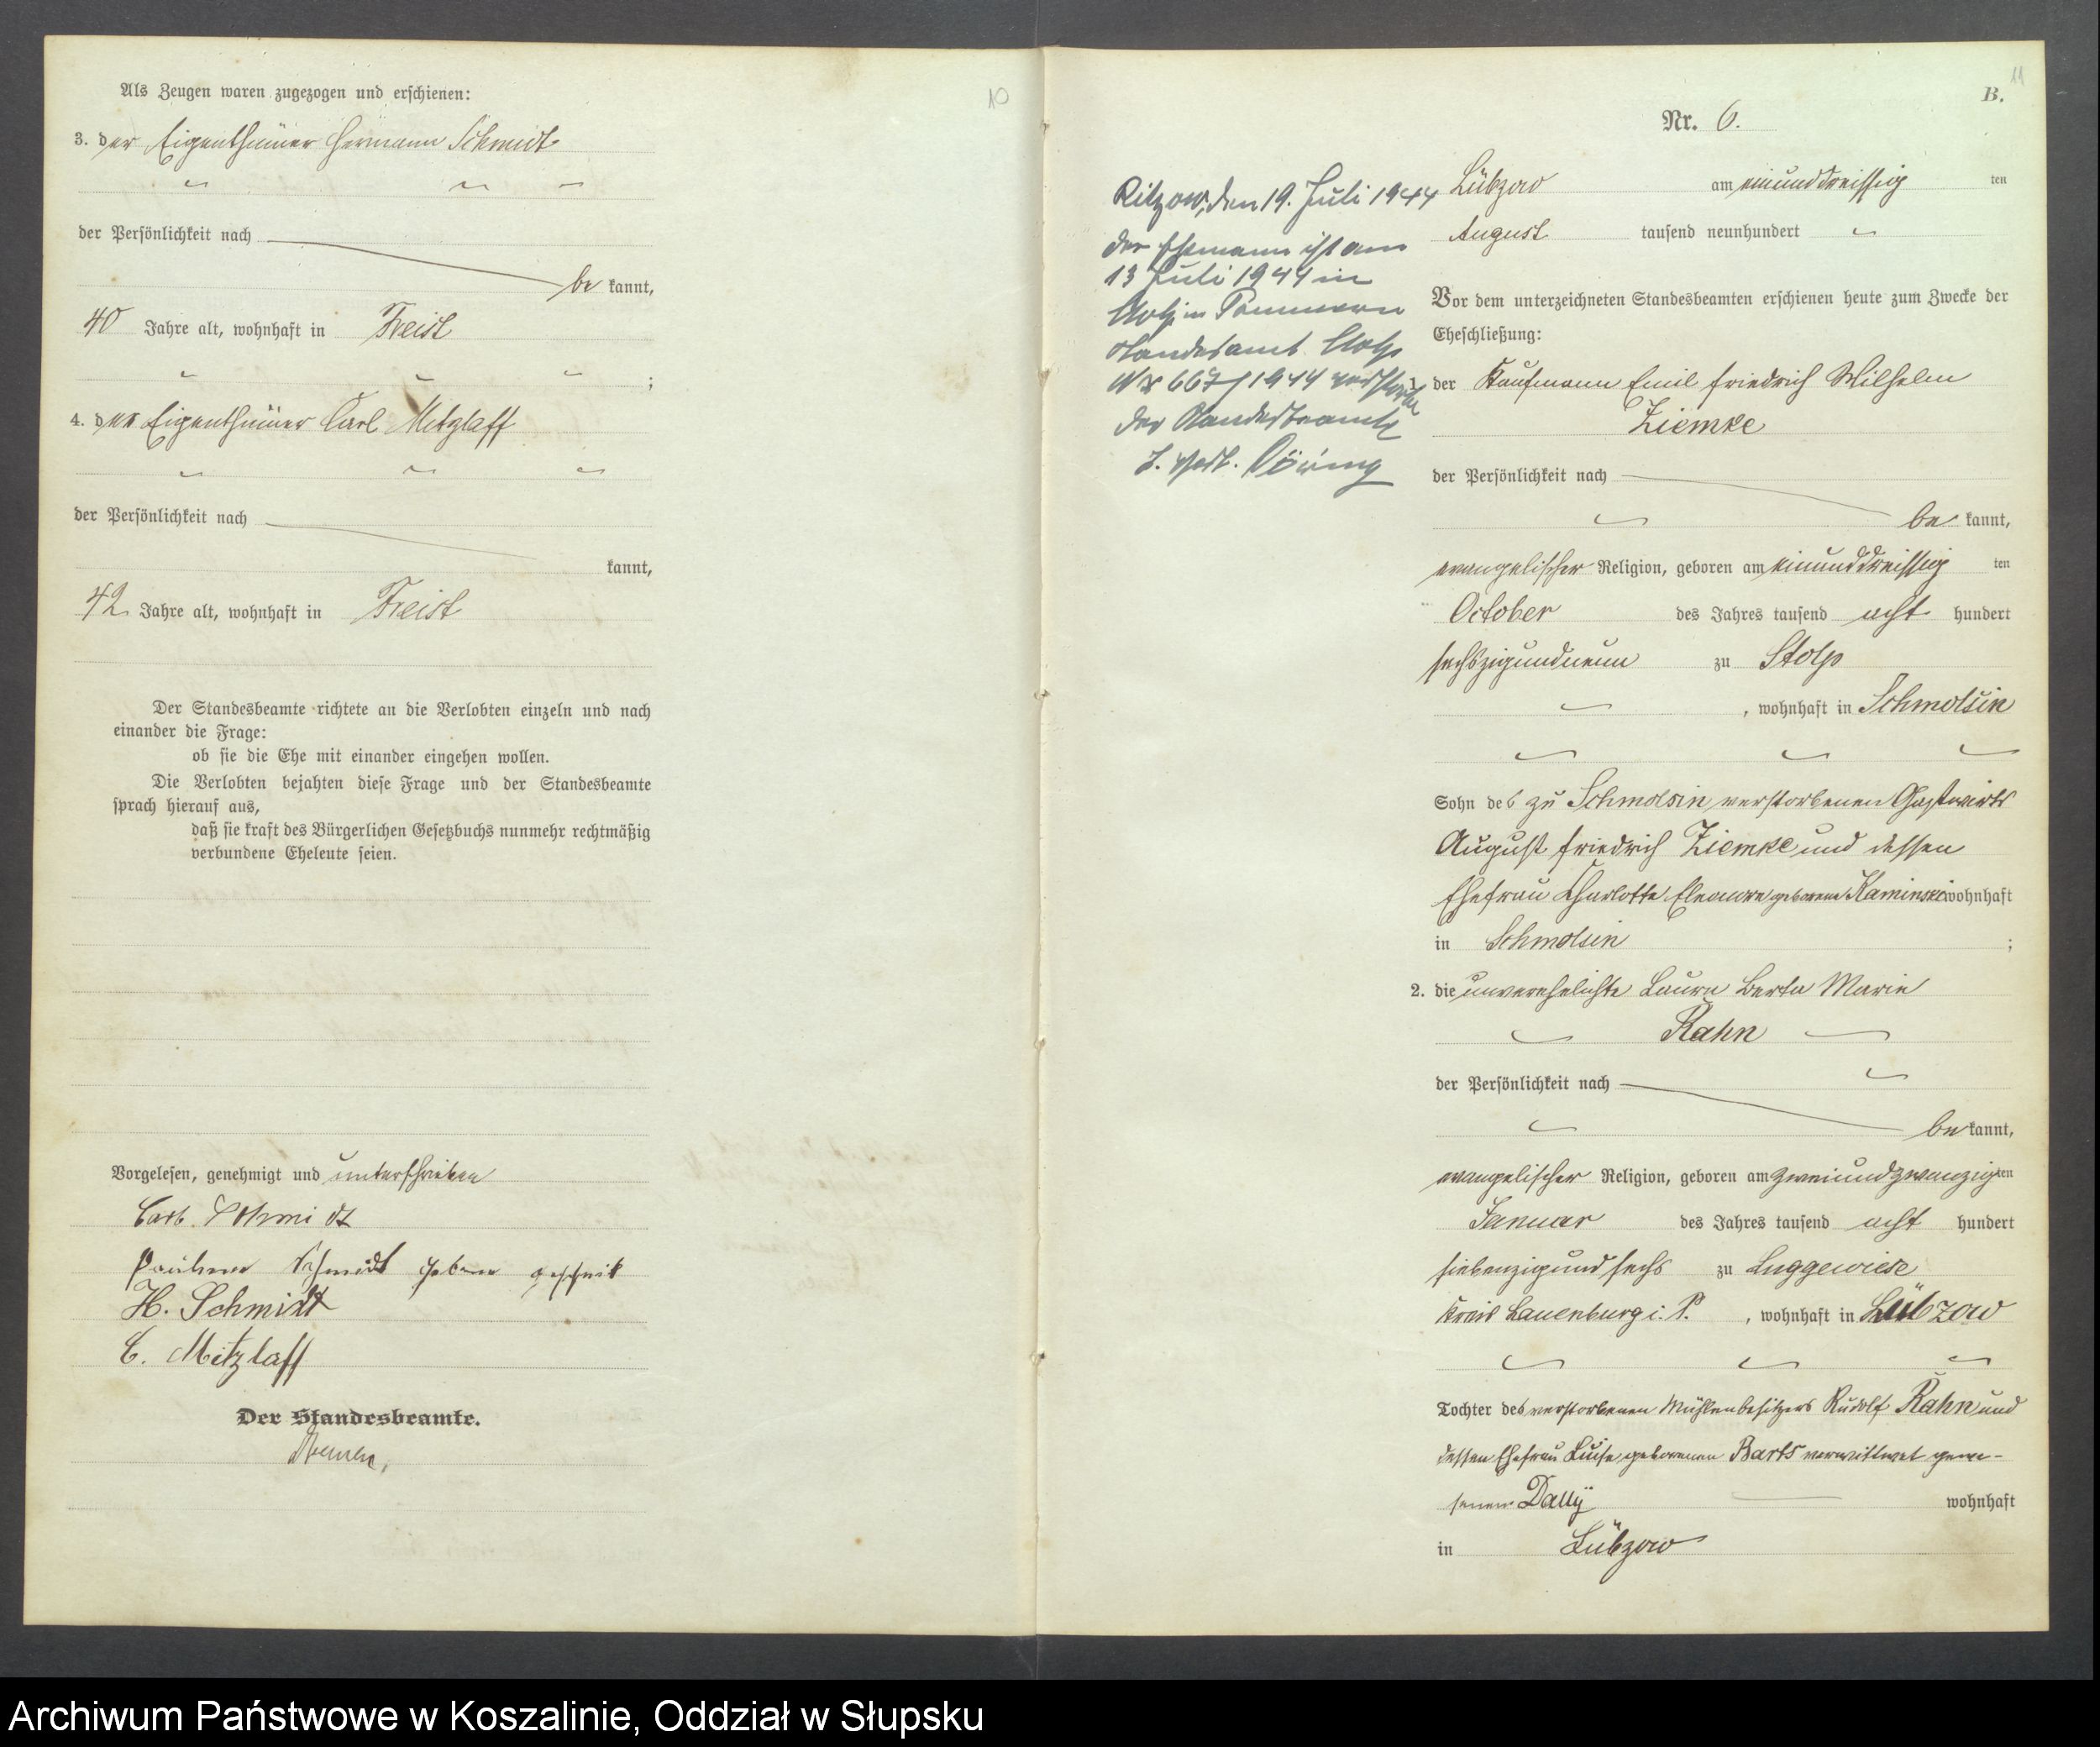 Als Zeugen waren zugezogen und erschienen:
3. der Eigenthümer Hermann Schmidt
der Persönlichkeit nach
be kannt,
40 Jahre alt, wohnhaft in Freist
;
4. der Eigenthümer Carl Metzlaff
der Persönlichkeit nach
kannt,
42 Jahre alt, wohnhaft in Freist
Der Standesbeamte richtete an die Verlobten einzeln und nach
einander die Frage:
ob sie die Ehe mit einander eingehen wollen.
Die Verlobten bejahten diese Frage und der Standesbeamte
sprach hierauf aus,
daß sie kraft des Bürgerlichen Gesetzbuchs nunmehr rechtmäßig
verbundene Eheleute seien.
Vorgelesen, genehmigt und unterschrieben
Carl Schmidt
Schmidt
H. Schmidt
C. Metzlaff
Der Standesbeamte.
10
11
B.
Nr. 6.
Lübzow am einunddreissig ten
August tausend neunhundert
Vor dem unterzeichneten Standesbeamten erschienen heute zum Zwecke der
Eheschließung:
1. der Kaufmann Emil Friedrich Wilhelm
Ziemke
der Persönlichkeit nach
be kannt,
evangelischer Religion, geboren am einunddreissig ten
October des Jahres tausend acht hundert
sechszigundneun zu Stolp
, wohnhaft in Schmolsin
Sohn des zu Schmolsin verstorbenen Gastwirts
August Friedrich Ziemke und dessen
Ehefrau Charlotte Eleonore geborene Kaminski wohnhaft
in Schmolsin ;
2. die unverehelichte Laura Berta Marie
Rahn
der Persönlichkeit nach
be kannt,
evangelischer Religion, geboren am zweiundzwanzigten
Januar des Jahres tausend acht hundert
siebenzigundsechs zu Luggewiese
Kreis Lauenburg i. P. , wohnhaft in Lübzow
Tochter des verstorbenen Mühlenbesitzers Rudolf Rahn und
dessen Ehefrau Luise geborenen Barts verwittwet gewe-
senen Dally wohnhaft
in Lübzow
Ritzow, den 19. Juli 1944
Der Ehemann ist am
13 Juli 1944 in
Stolp in Pommern
Standesamt Stolp
Nr 667/1944 verstorben
Der Standesbeamte
Döring
Archiwum Państwowe w Koszalinie, Oddział w Słupsku